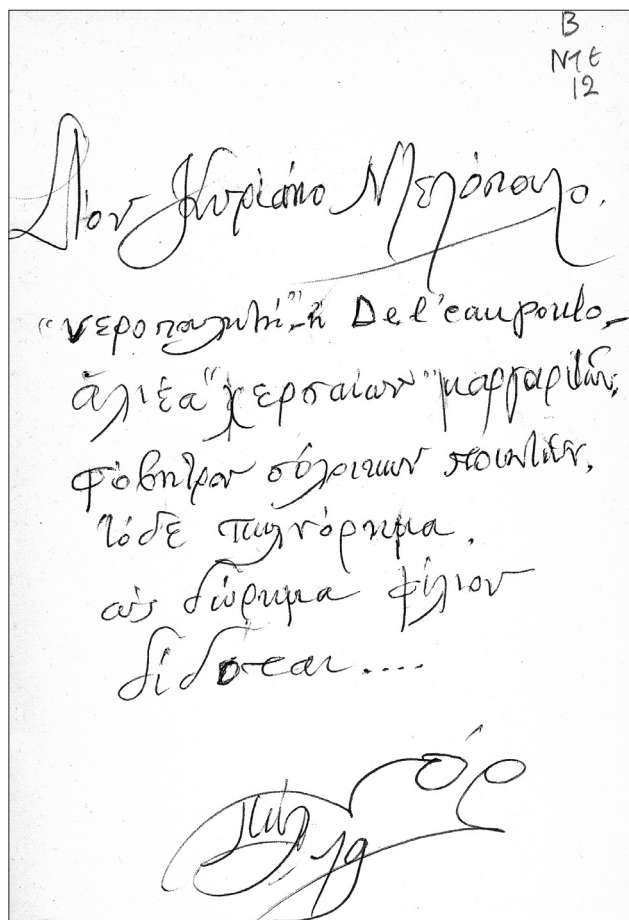 B
ΝΤΕ
12
Στον Κυριάκο Ντελόπουλο,
"νεροπουλητή"-ἢ De l'eau poulo-
ἁλιέα "χερσαίων" μαργαριτῶν,
φόβητρον ποιητῶν,
τόδε παιγνόρημα,
ὡς δώρημα φίλιον
δίδοται....